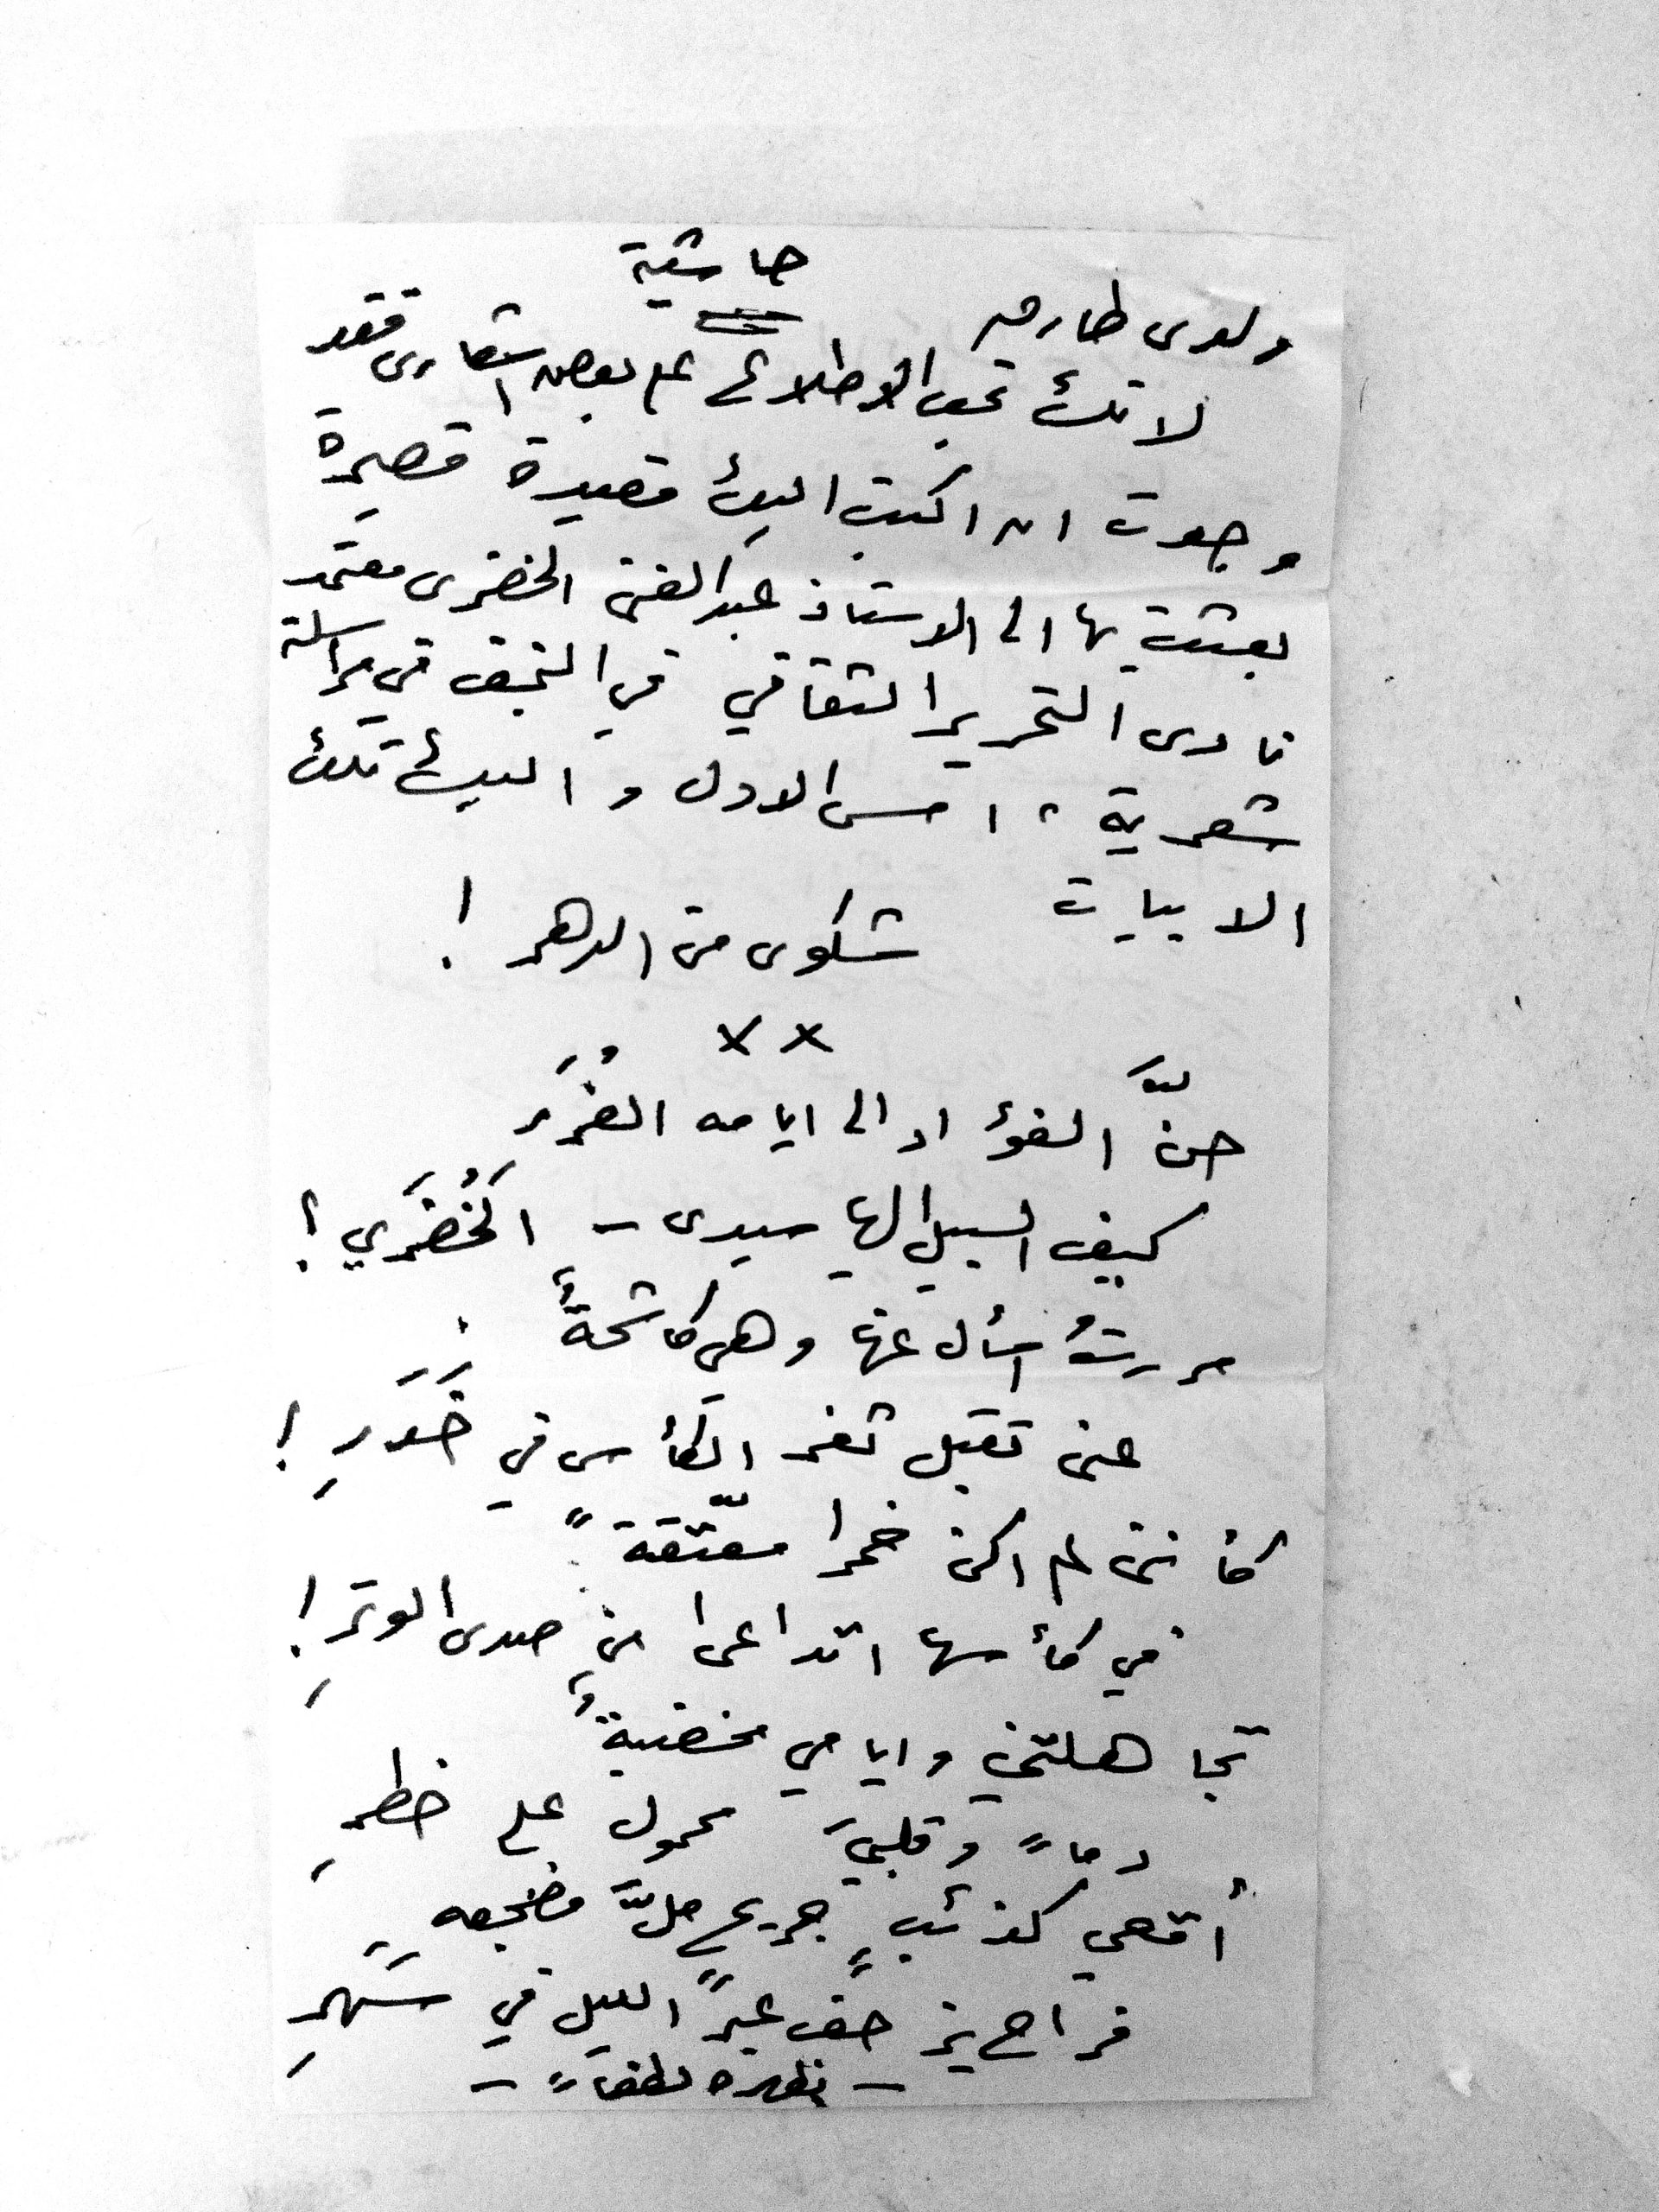 حاشية
ولدى طارق
لانك تحب الاطلاع على بعض اشعارى فقد
وجدت ان اكتب اليك قصيدة قصيرة
بعثت بها الى الاستاذ عبد الغني الخضرى معتمد
نادى التحرير الثقافي في النجف في مراسلة
شعرية ، امس الاول واليك تلك
الابيات
شكوى من الدهر !
××
حنَّ الفؤاد الى ايامه الغُرَرِ
كيف السبيل اليها سيدى - الخُضَري ؟
مررتُ اسأل عنها وهي كاشحةٌ
عني تقبل ثغر الكأس في خَدَرِ !
كأنني لم اكن خمرا معتّقةً
في كأسها اتداعى من صدى الوترِ !
تجاهلتني وايامي مخضبةٌ
دماً وقلبيَ محمول على خطرِ
أقعي كذئبٍ جريح ملَّ مضجعه
فراح يزحف عبرَ الليل في سَهَرِ
- نظره لطفاً -